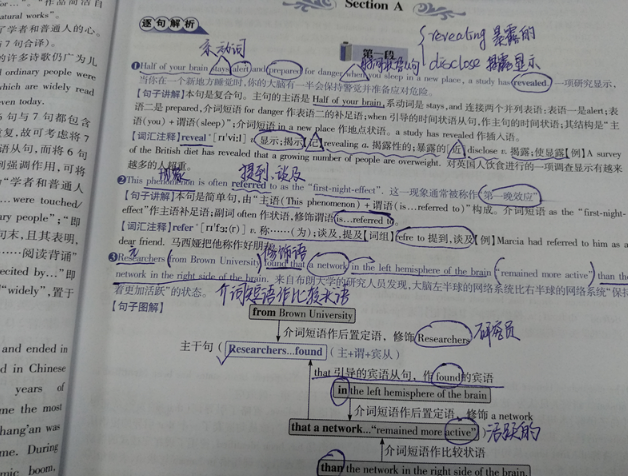 for..."。"作品简洁自
natural works"。
了学者和普通人的心。
7句合译)。
的许多诗歌仍广为儿
ordinary people were
which are widely read
even today.
句与7句都包含
重复,故可考虑将7
语从句,而将6句
到强调作用,可将
"学者和普通人
...were touched/
nary people";"即
句末,且其表明、
……阅读背诵"
ecited by..."即
"widely",置于
and ended in
d in Chinese
years of
me the most
hang'an was
me. During
mic boom,
Section A
逐句解析
系动词
第一段
revealing 暴露的
disclose 揭露,显示
①Half of your brain stays alert and prepared for danger when you sleep in a new place, a study has revealed. 一项研究显示,
当你在一个新地方睡觉时,你的大脑有一半会保持警觉并准备应对危险。
【句子讲解】本句是复合句。主句的主语是Half of your brain,系动词是stays,and连接两个并列表语;表语一是alert;表
语二是prepared,介词短语for danger作表语二的补足语;when引导的时间状语从句,作主句的时间状语;其结构是"主
语(you)+谓语(sleep)";介词短语in a new place作地点状语。a study has revealed作插入语。
【词汇注释】reveal* [rɪ'viːl] v. 显示;揭示【近】revealing a. 揭露性的;暴露的【近】disclose v. 揭露;使显露【例】A survey
of the British diet has revealed that a growing number of people are overweight. 对英国人饮食进行的一项调查显示有越来
越多的人超重。
现象
提到,谈及
②This phenomenon is often referred to as the "first-night-effect". 这一现象通常被称作"第一晚效应"。
【句子讲解】本句是简单句,由"主语(This phenomenon)+谓语(is...referred to)"构成。介词短语as the "first-night-
effect"作主语补足语;副词often作状语,修饰谓语is...referred to。
【词汇注释】refer* [rɪ'fɜː(r)] v. 称……(为);谈及,提及【词组】refre to 提到,谈及【例】Marcia had referred to him as a
dear friend. 马西娅把他称作好朋友。
修饰语
③Researchers from Brown University found that a network in the left hemisphere of the brain "remained more active" than the
network in the right side of the brain. 来自布朗大学的研究人员发现,大脑左半球的网络系统比右半球的网络系统"保持
着更加活跃"的状态。
介词短语作比较状语
【句子图解】
from Brown University
介词短语作后置定语,修饰Researchers
研究员
主干句
Researchers...found
(主+谓+宾从)
that引导的宾语从句,作found的宾语
in the left hemisphere of the brain
介词短语作后置定语,修饰a network
that a network..."remained more active"
活跃的
介词短语作比较状语
than the network in the right side of the brain.